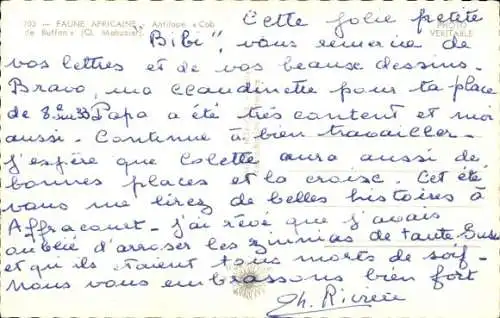 103 — FAUNE AFRICAINE. Antilope «Cob
de Buffon»
PHOTO
VERITABLE
Cette jolie petite
"Bibi", vous remercie de
vos lettres et de vos beaux dessins.
Bravo, ma Claudinette pour ta place
de 8e sur 33 Papa a été très content et moi
aussi. Continue à bien travailler.
J'espère que Colette aura aussi de
bonnes places et la croix. Cet été
vous me lirez de belles histoires à
j'ai rêvé que j'avais
oublié d'arroser les zinnias de tante Suzy
et qu'ils étaient tous morts de soif.
Nous vous embrassons bien fort